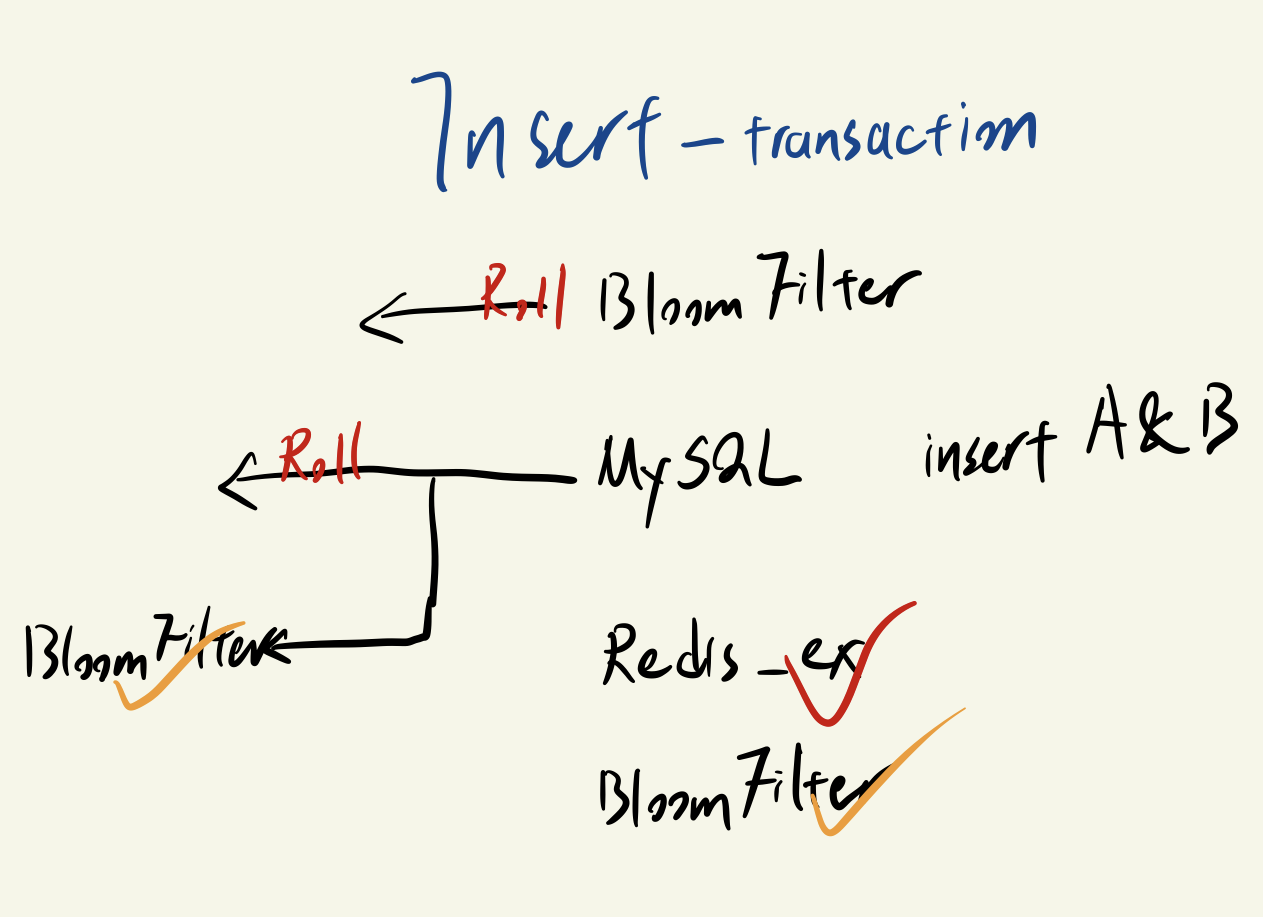 Insert - transaction
Roll BloomFilter
Roll MySQL insert A & B
BloomFilter Redis_ex
BloomFilter